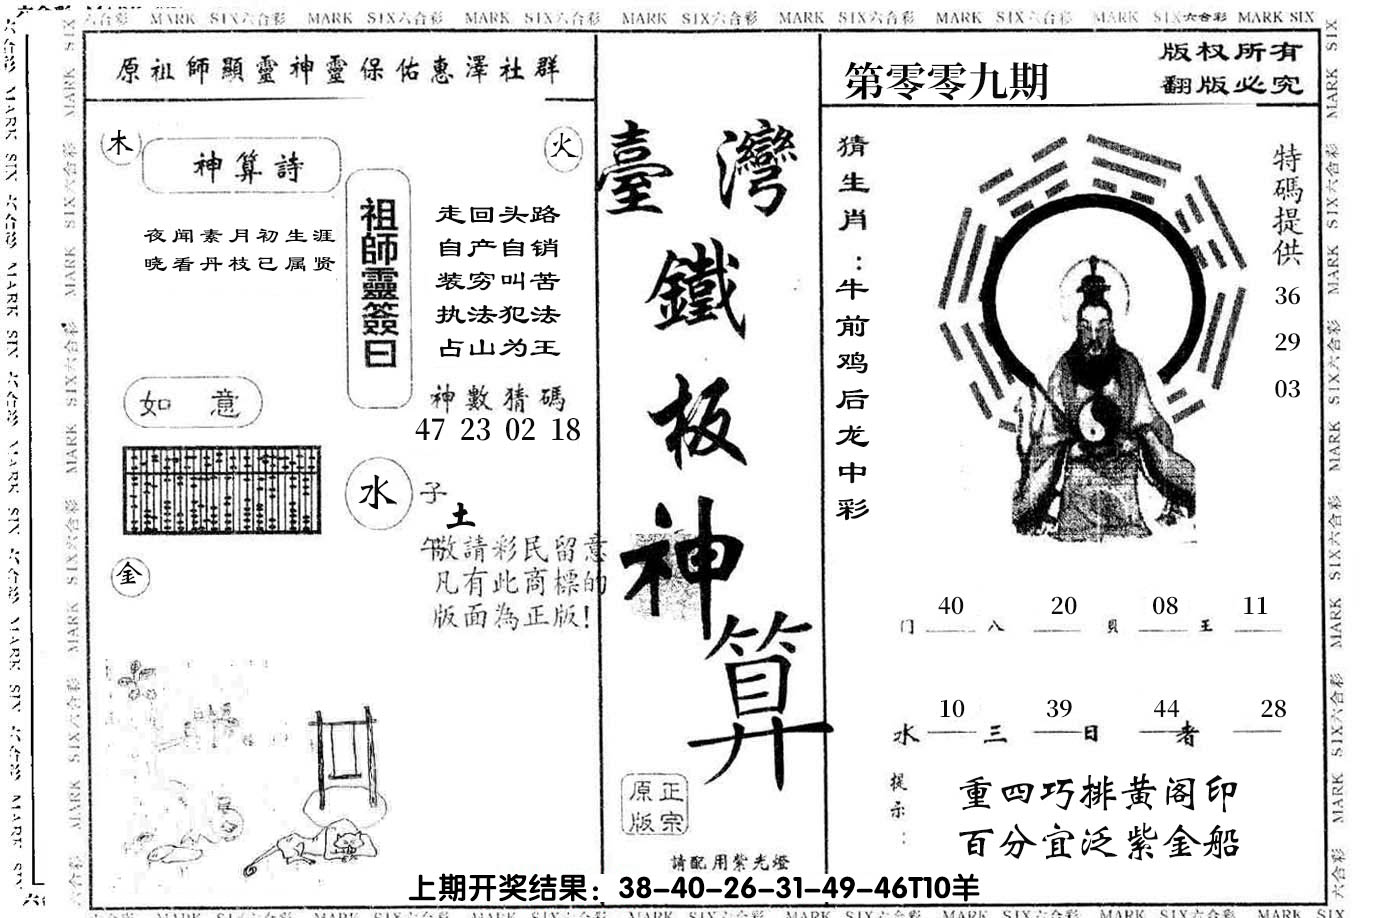 六合彩 MARK SIX六合彩 MARK SIX六合彩 MARK SIX六合彩 MARK SIX六合彩 MARK SIX六合彩 MARK SIX六合彩 MARK SIX六合彩 MARK SIX
原祖師顯靈神靈保佑惠澤社群
木
神算詩
火
夜闻素月初生涯
晓看丹枝已属贤
祖師靈簽曰
走回头路
自产自销
装穷叫苦
执法犯法
占山为王
如意
神數猜碼
47 23 02 18
水
子
土
午
金
敬請彩民留意
凡有此商標的
版面為正版!
臺灣
鐵
板
神
算
正宗
原版
請配用紫光燈
第零零九期
版权所有
翻版必究
猜生肖:牛前鸡后龙中彩
特碼提供
36
29
03
40 20 08 11
门 八 貝 王
10 39 44 28
水 三 日 者
提示:
重四巧排黄阁印
百分宜泛紫金船
上期开奖结果：38-40-26-31-49-46T10羊